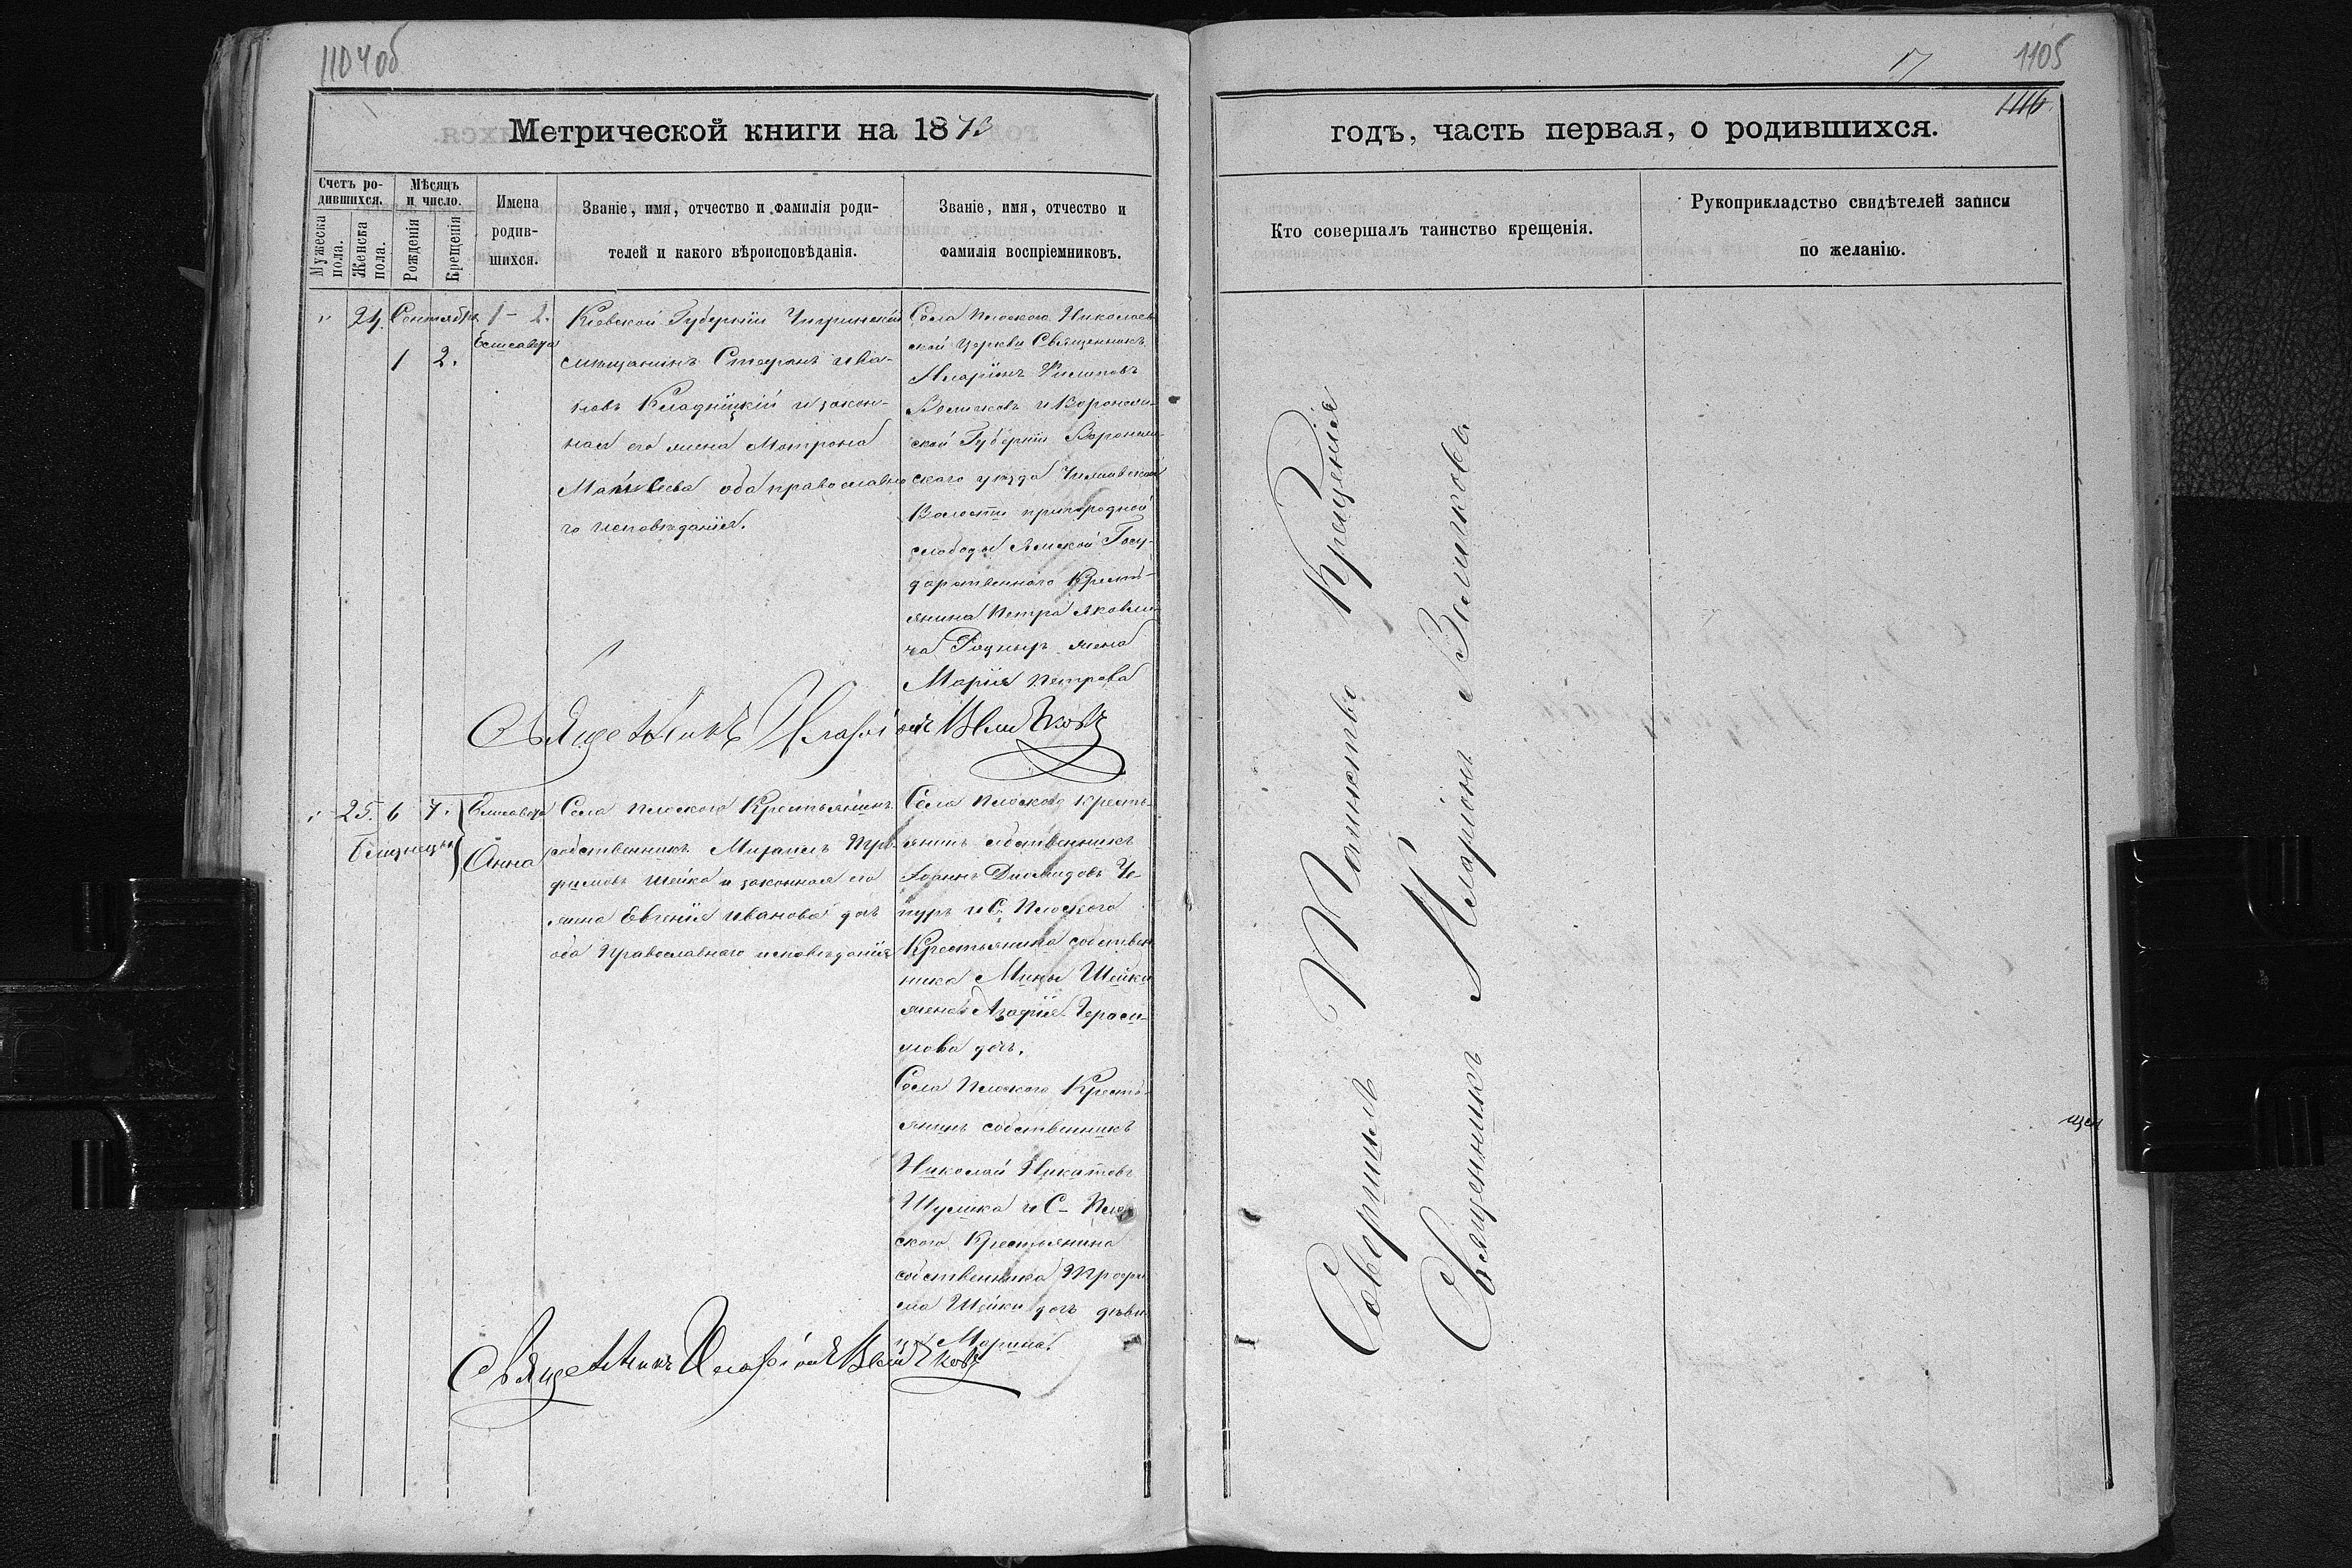 1104об
Метрической книги на 1873
Счетъ ро-
дившихся.
Мужеска пола.
Женска пола.
Мѣсяцъ
и число.
Рожденія
Крещенія
Имена
родив-
шихся.
Званіе, имя, отчество и фамилія роди-
телей и какого вѣроисповѣданія.
Званіе, имя, отчество и
фамилія воспріемниковъ.
24.
Сентября
1 - 2.
1 2.
Елисавета
Кіевской Губерніи Чигринскій
мѣщанинъ Стефанъ Ива-
новъ Кладницкій и закон-
ная его жена Мотрона
Матвѣева оба православна-
го исповѣданія.
Села Плоского Николаев-
ской церкви Священникъ
Иларіонъ Филиповъ
Величковъ и Воронеж-
ской Губерніи Воронеж-
скаго уѣзда
Волости пригородной
слободы Ямской Госу-
дарственного Кресть-
янина Петра Яковле-
ва жена
Марія Петрова
Священникъ Иларіонъ Величковъ
25. 6 7.
Близнецы
Елисавета
Анна
Села Плоского Крестьянинъ
собственникъ Михаилъ Тро-
фимовъ Шейка и законная его
жена Евгенія Иванова доч.
оба Православнаго исповѣданія
Села Плоского кресть-
янинъ собственникъ
Іоаннъ Діомидовъ Че-
пуръ и С. Плоского
Крестьянина собствен
ника Мины Шейки
жена Агафія Гераси-
мова доч.
Села Плоского Кресть-
янинъ собственникъ
Николай
и С- Пло
ского Крестьянина
собственника Трофи
ма Шейки доч. дѣви
ца Марина
Священникъ Иларіонъ Величковъ
17
1105
1116
годъ, часть первая, о родившихся.
Кто совершалъ таинство крещенія.
Рукоприкладство свидѣтелей записи
по желанію.
Совершилъ Таинство Крещенія
Священникъ Иларіонъ Величковъ